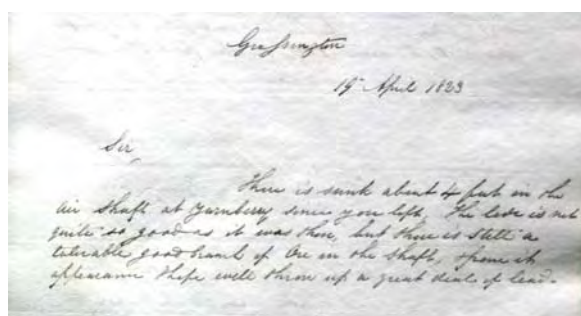 Grassington
19th April 1823
Sir,
There is sunk about 4 feet in the
air shaft at Yarnbery since you left. The lode is not
quite so good as it was then, but there is still a
tolerable good branch of Ore in the shaft, from its
appearance I hope will throw up a great deal of lead.